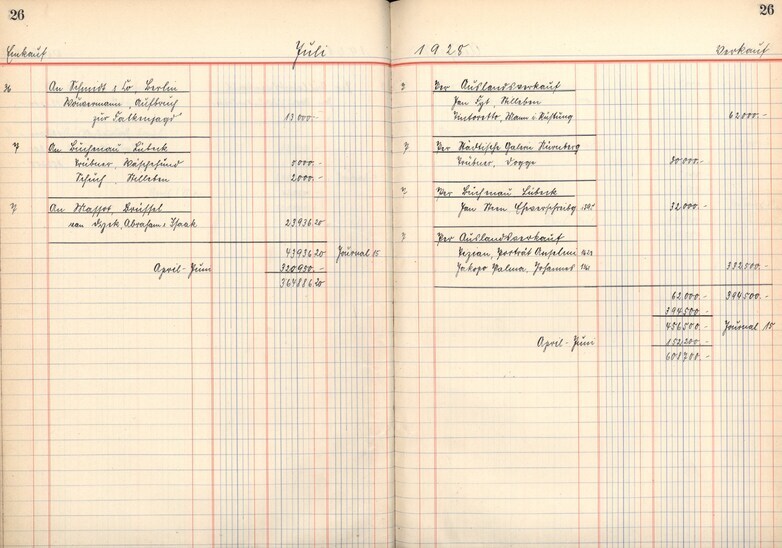 26
Einkauf Juli
An Schmidt & Co, Berlin
Wouwermann, Aufbruch
zur Falkenjagd 13000.-
7 An Buchenau Lübeck
Trübner, 5000.-
Schuch, Stilleben 2000.-
7 An Brüssel
van Dyck, Abraham & Isaak 23936 20
43936 20 Journal 15
April-Juni 320950.-
364886 20
26
1928 Verkauf
Per Auslandsverkauf
Jan Fyt, Stilleben
Tintoretto, Mann i. Rüstung 62000.-
7 Per Städtische Galerie Nürnberg
Trübner, Dogge 30000.-
Per Buchenau Lübeck
Jan Steen 32000.-
Per Auslandsverkauf
Tizian, Porträt
Jakopo Palma, Johannes 332500.-
62000.- 394500.-
394500.-
456500.- Journal 15
April-Juni 152200.-
608700.-